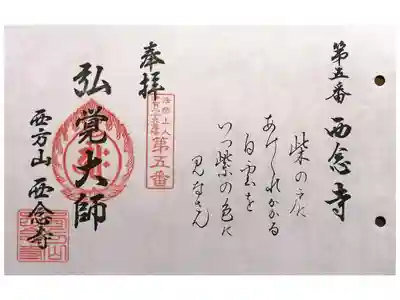 第五番 西念寺
柴の戸に
あけくれかかる
白雲を
いつ紫の色に
見なさん
奉拝
法然上人
第五番
弘覚大師
西方山 西念寺